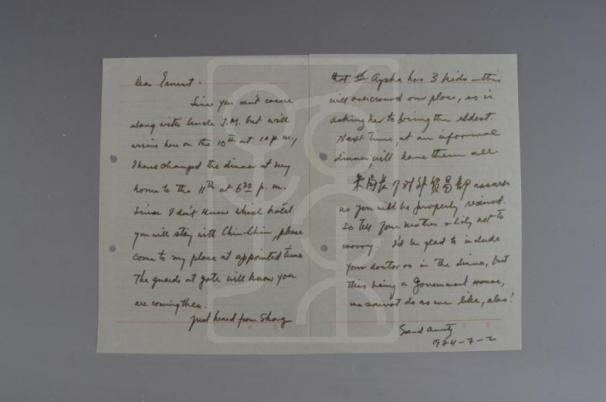 Dear Ernest -
Since you won't come
along with Uncle J.M. but will
arrive here on the 10th at 10 p.m.,
I have changed the dinner at my
home to the 11th at 6:30 p.m.
Since I don't know which hotel
you will stay with Chin-Chin, please
come to my place at appointed time
The guards at gate will know you
are coming then.
Just heard from Shang
that Aysha has 3 kids - this
will overcrowd our place, so is
asking her to bring the eldest.
Next time, at an informal
dinner, will have them all
对外贸易部 assures
us you will be properly received.
So tell your mother & Lily not to
worry. I'd be glad to include
your doctor in the dinner, but
this being a Government House,
we cannot do as we like, alas!
Second Aunty
1974-7-2